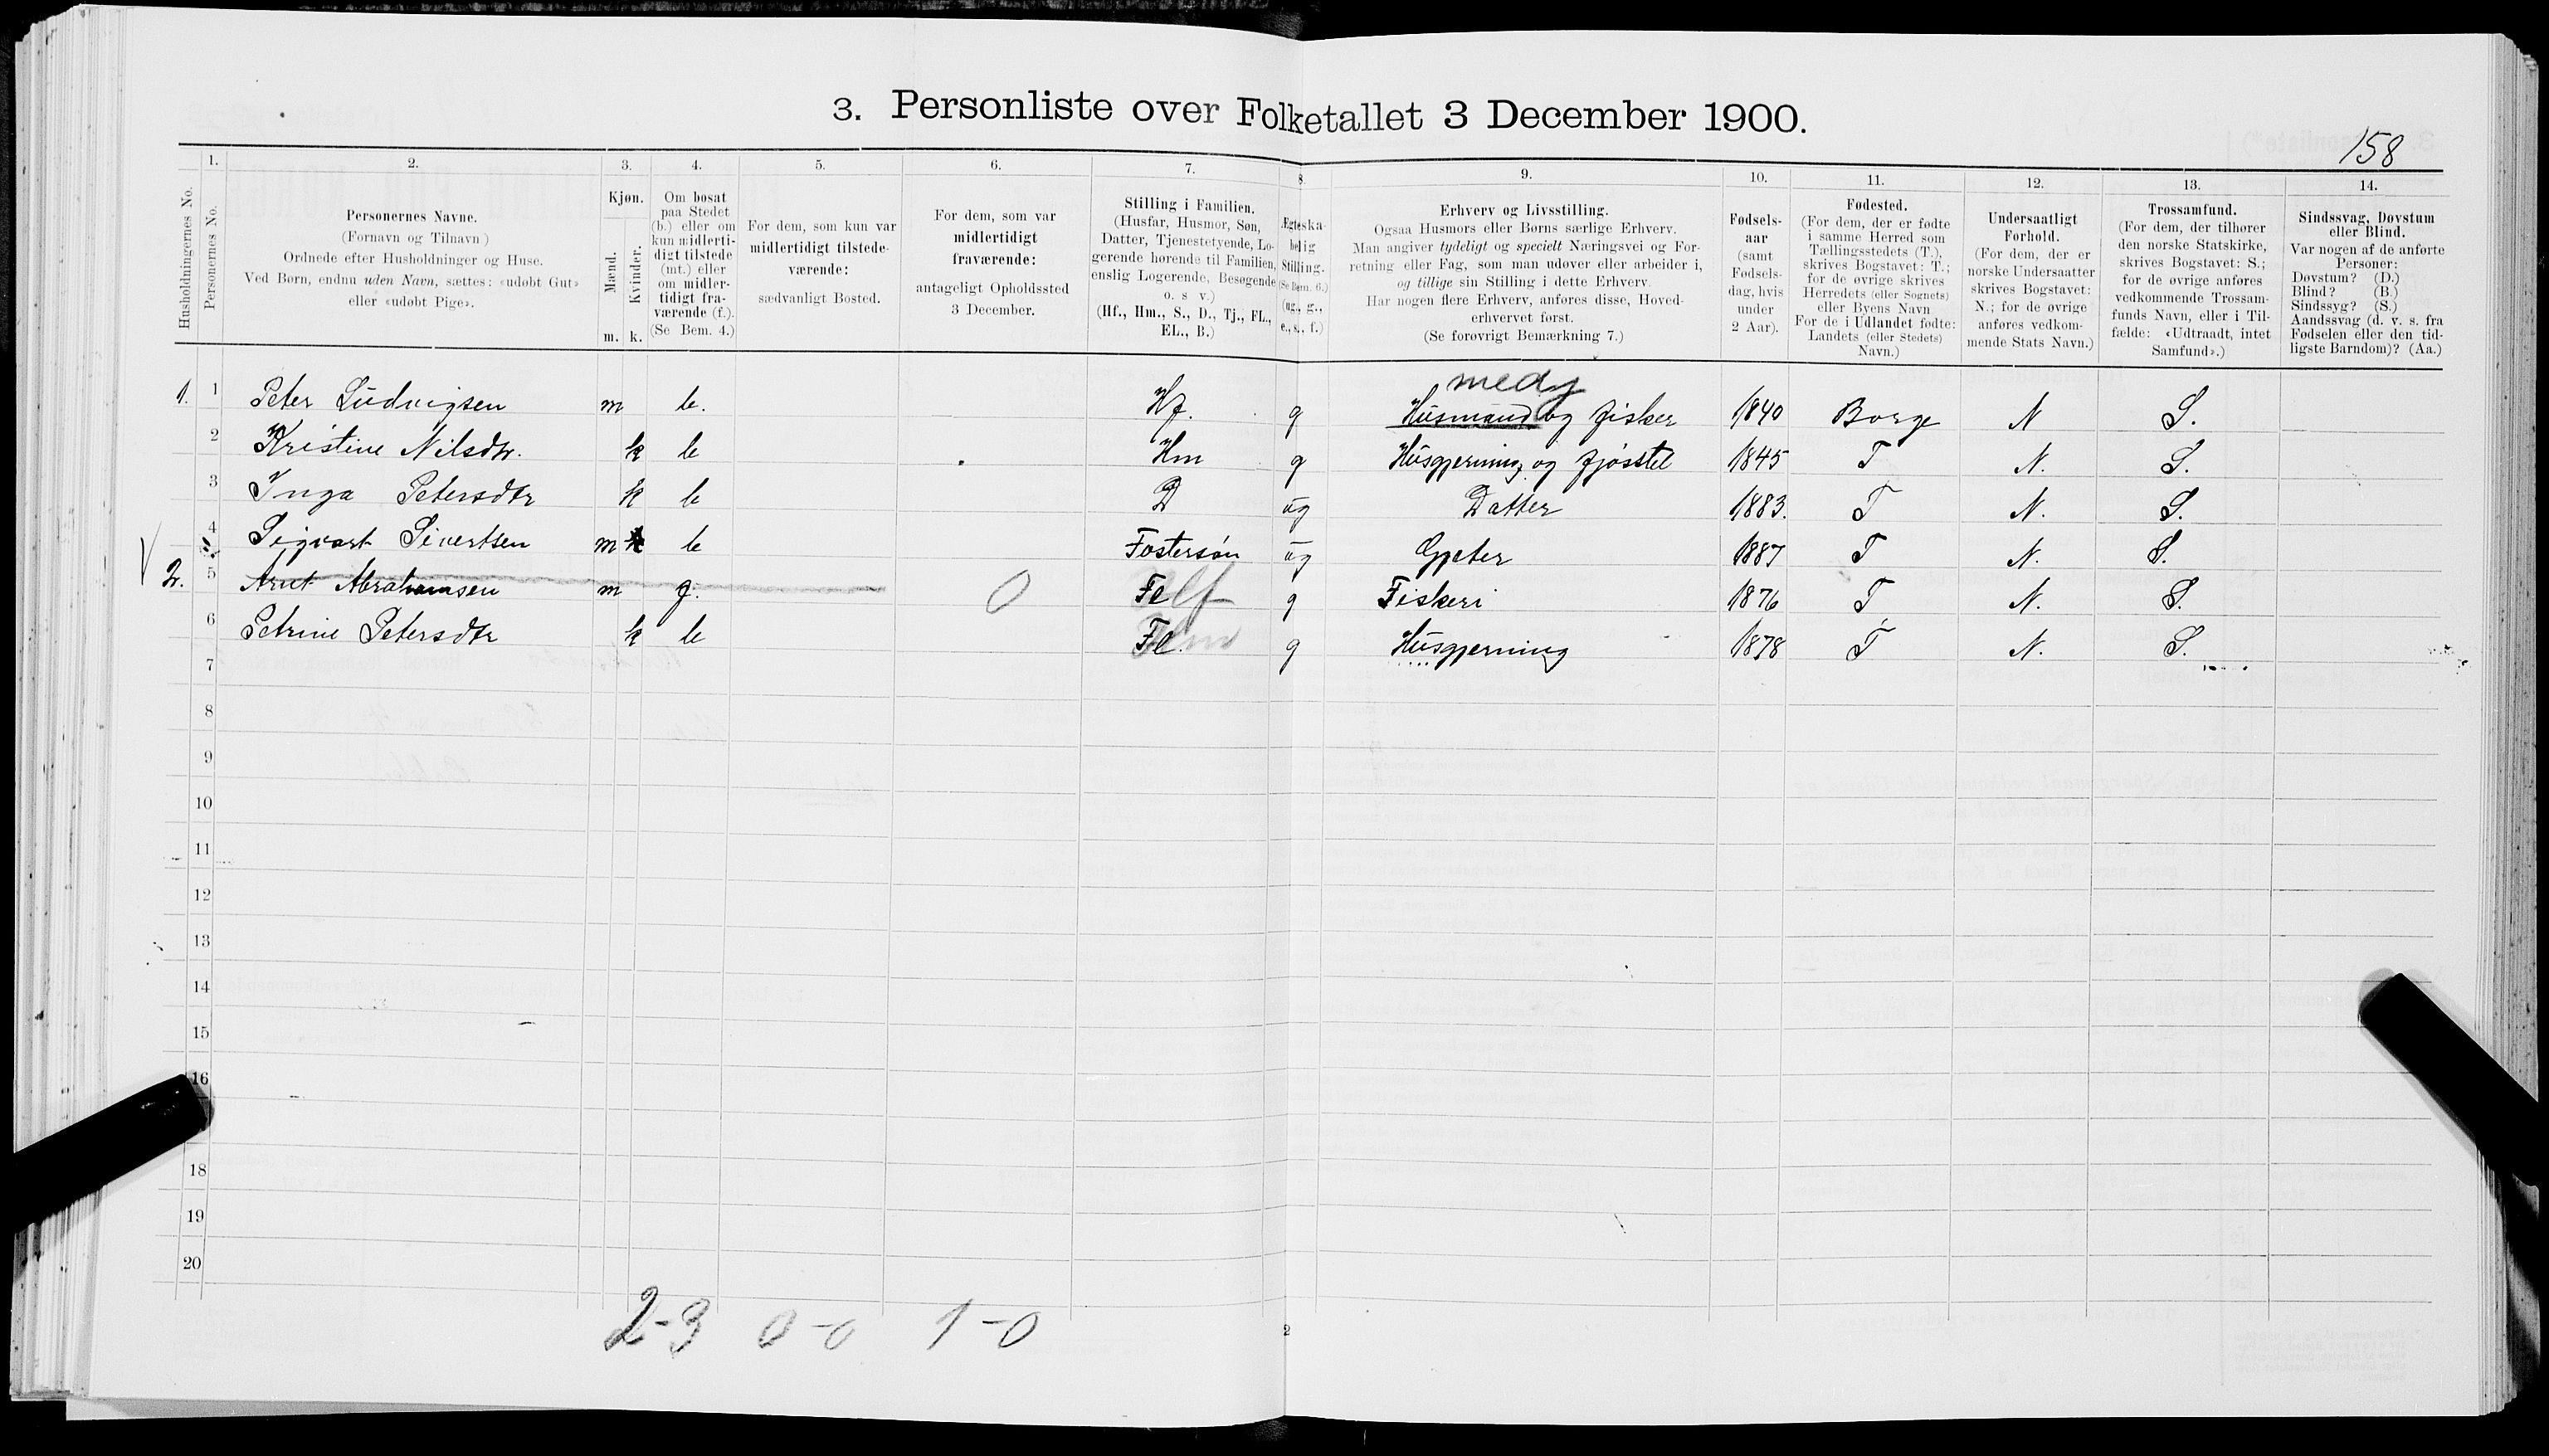 3. Personliste over Folketallet 3 December 1900.
158
1. 2. 3. 4. 5. 6. 7. 8. 9. 10. 11. 12. 13. 14.
Husholdningernes No.
Personernes No.
Personernes Navne.
(Fornavn og Tilnavn)
Ordnede efter Husholdninger og Huse.
Ved Børn, endnu uden Navn, sættes: «udøbt Gut»
eller «udøbt Pige».
Kjøn.
Mænd.
Kvinder.
m. k.
Om bosat
paa Stedet
(b.) eller om
kun midlerti-
digt tilstede
(mt.) eller
om midler-
tidigt fra-
værende (f.).
(Se Bem. 4.)
For dem, som kun var
midlertidigt tilstede-
værende:
sædvanligt Bosted.
For dem, som var
midlertidigt
fraværende:
antageligt Opholdssted
3 December.
Stilling i Familien.
(Husfar, Husmor, Søn,
Datter, Tjenestetyende, Lo-
gerende hørende til Familien,
enslig Logerende, Besøgende
o. s v.)
(Hf., Hm., S., D., Tj., FL.,
EL., B.)
Ægteska-
belig
Stilling.
(Se Bem. 6.)
(ug., g.,
e., s., f.)
Erhverv og Livsstilling.
Ogsaa Husmors eller Børns særlige Erhverv.
Man angiver tydeligt og specielt Næringsvei og For-
retning eller Fag, som man udøver eller arbeider i,
og tillige sin Stilling i dette Erhverv.
Har nogen flere Erhverv, anføres disse, Hoved-
erhvervet først.
(Se forøvrigt Bemærkning 7.)
Fødsels-
aar
(samt
Fødsels-
dag, hvis
under
2 Aar).
Fødested.
(For dem, der er fødte
i samme Herred som
Tællingsstedets (T.),
skrives Bogstavet: T.;
for de øvrige skrives
Herredets (eller Sognets)
eller Byens Navn
For de i Udlandet fødte:
Landets (eller Stedets)
Navn.)
Undersaatligt
Forhold.
(For dem, der er
norske Undersaatter
skrives Bogstavet:
N.; for de øvrige
anføres vedkom-
mende Stats Navn.)
Trossamfund.
(For dem, der tilhører
den norske Statskirke,
skrives Bogstavet: S.;
for de øvrige anføres
vedkommende Trossam-
funds Navn, eller i Til-
fælde: «Udtraadt, intet
Samfund».)
Sindssvag, Døvstum
eller Blind.
Var nogen af de anførte
Personer:
Døvstum? (D.)
Blind? (B.)
Sindssyg? (S.)
Aandssvag (d. v. s. fra
Fødselen eller den tid-
ligste Barndom)? (Aa.)
1. 1 Peter Ludvigsen m b. Hf. g Husmand og fisker 1840 Borge N S.
2 Kristine Nilsdtr. k b Hm g Husgjerning og fjøsstel 1845 T N. S.
3 Inga Petersdtr k b D ug Datter 1883. T N. S.
4 Sigvart Sivertsen m b Fostersøn ug Gjeter 1887 T N. S.
2. 5 Arnt Abrahamsen m f. 0 Fl Hf g Fiskeri 1876 T N. S.
6 Petrine Petersdtr k b Fl. Hm g Husgjerning 1878 T N. S.
7
8
9
10
11
12
13
14
15
16
18
19
20
2-3 0-0 1-0
2